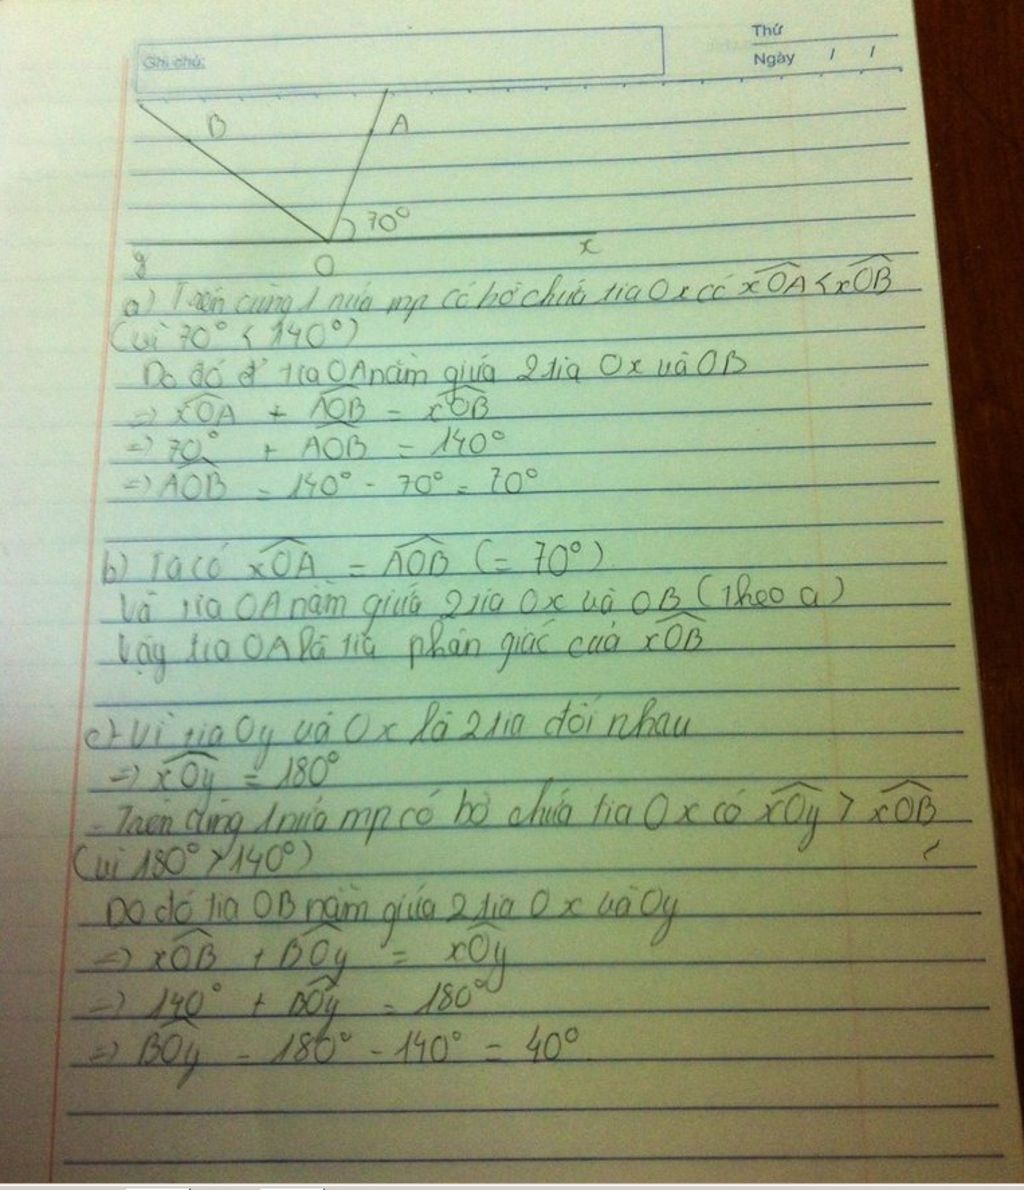 Thứ
Ghi chú:
Ngày / /
B A
70°
y O x
a) Trên cùng 1 nửa mp có bờ chứa tia Ox có xOA < xOB
(vì 70° < 140°)
Do đó tia OA nằm giữa 2 tia Ox và OB
=> xOA + AOB = xOB
=> 70° + AOB = 140°
=> AOB = 140° - 70° = 70°
b) Ta có xOA = AOB (= 70°)
Và tia OA nằm giữa 2 tia Ox và OB (theo a)
Vậy tia OA là tia phân giác của xOB
c) Vì tia Oy và Ox là 2 tia đối nhau
=> xOy = 180°
- Trên cùng 1 nửa mp có bờ chứa tia Ox có xOy > xOB
(vì 180° > 140°)
Do đó tia OB nằm giữa 2 tia Ox và Oy
=> xOB + BOy = xOy
=> 140° + BOy = 180°
=> BOy = 180° - 140° = 40°